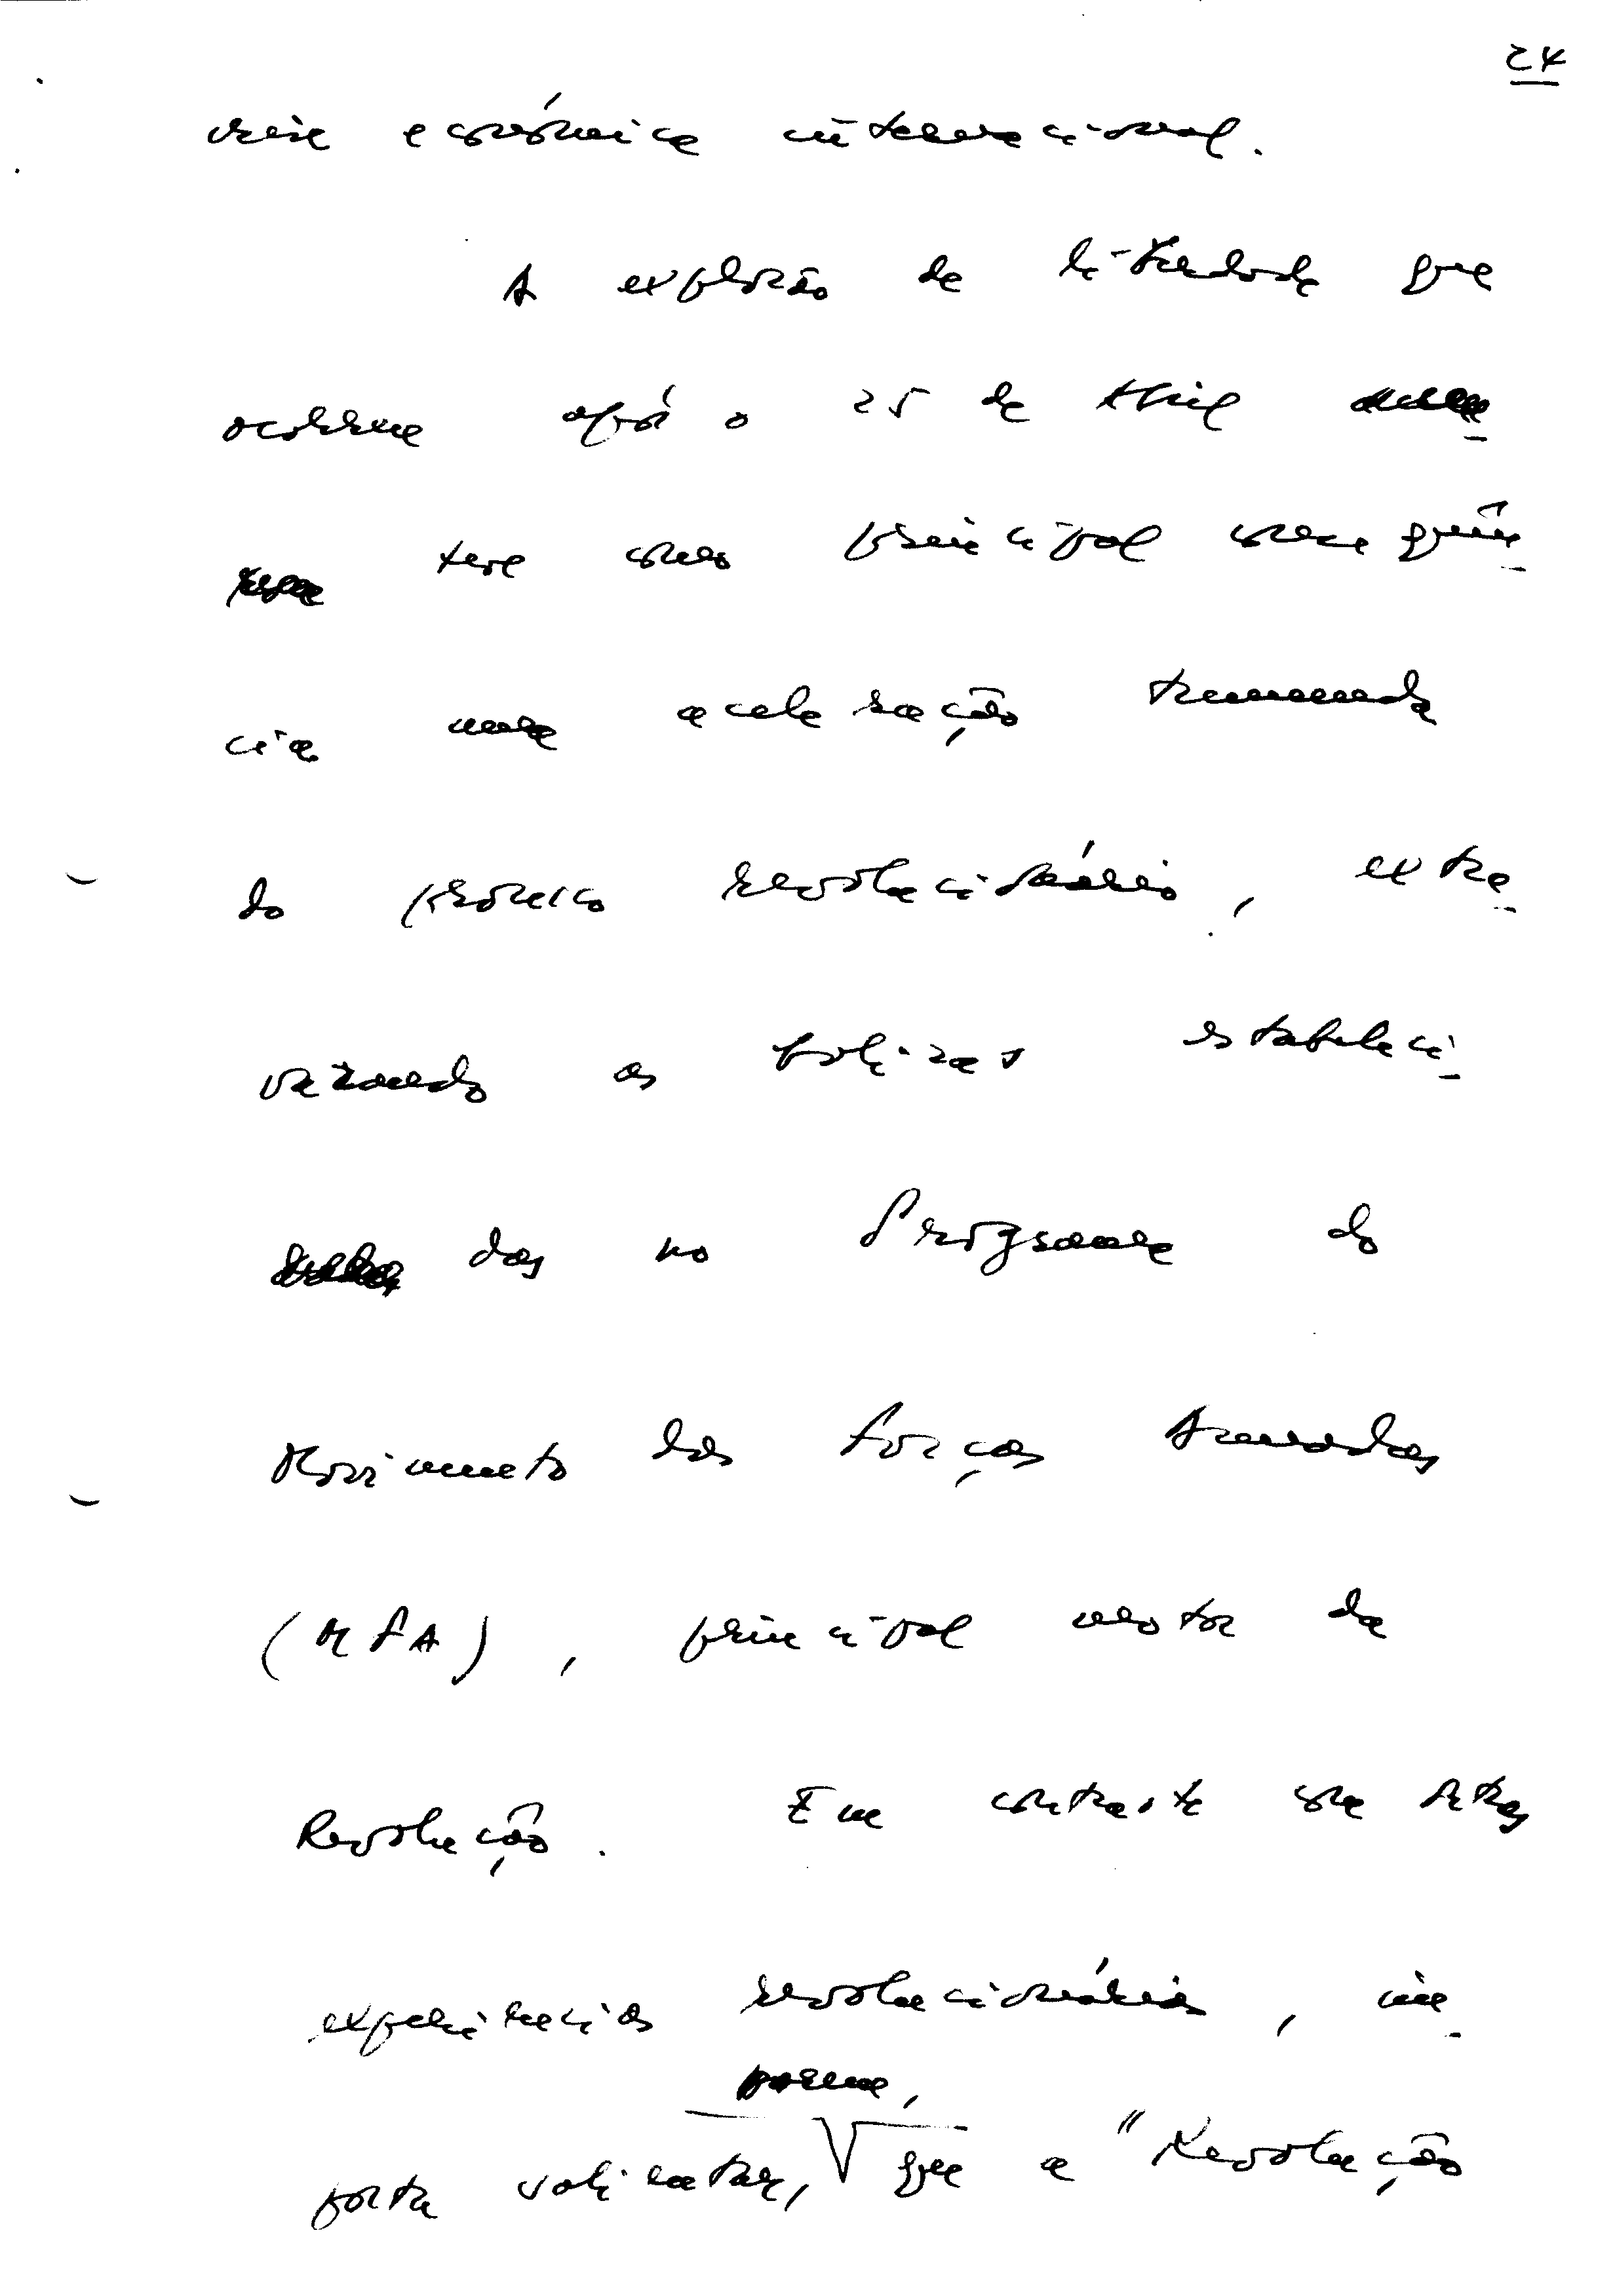 24
crise económica internacional.
A explosão de liberdade que
ocorreu após o 25 de Abril
teve como principal consequên-
cia uma aceleração tremenda
do processo revolucionário, extra-
vazando as balizas estabeleci-
das no Programa do
Movimento das Forças Armadas
(MFA), principal motor da
Revolução. Em contraste com outras
experiências revolucionárias, im-
porém,
porta salientar, que a "Revolução